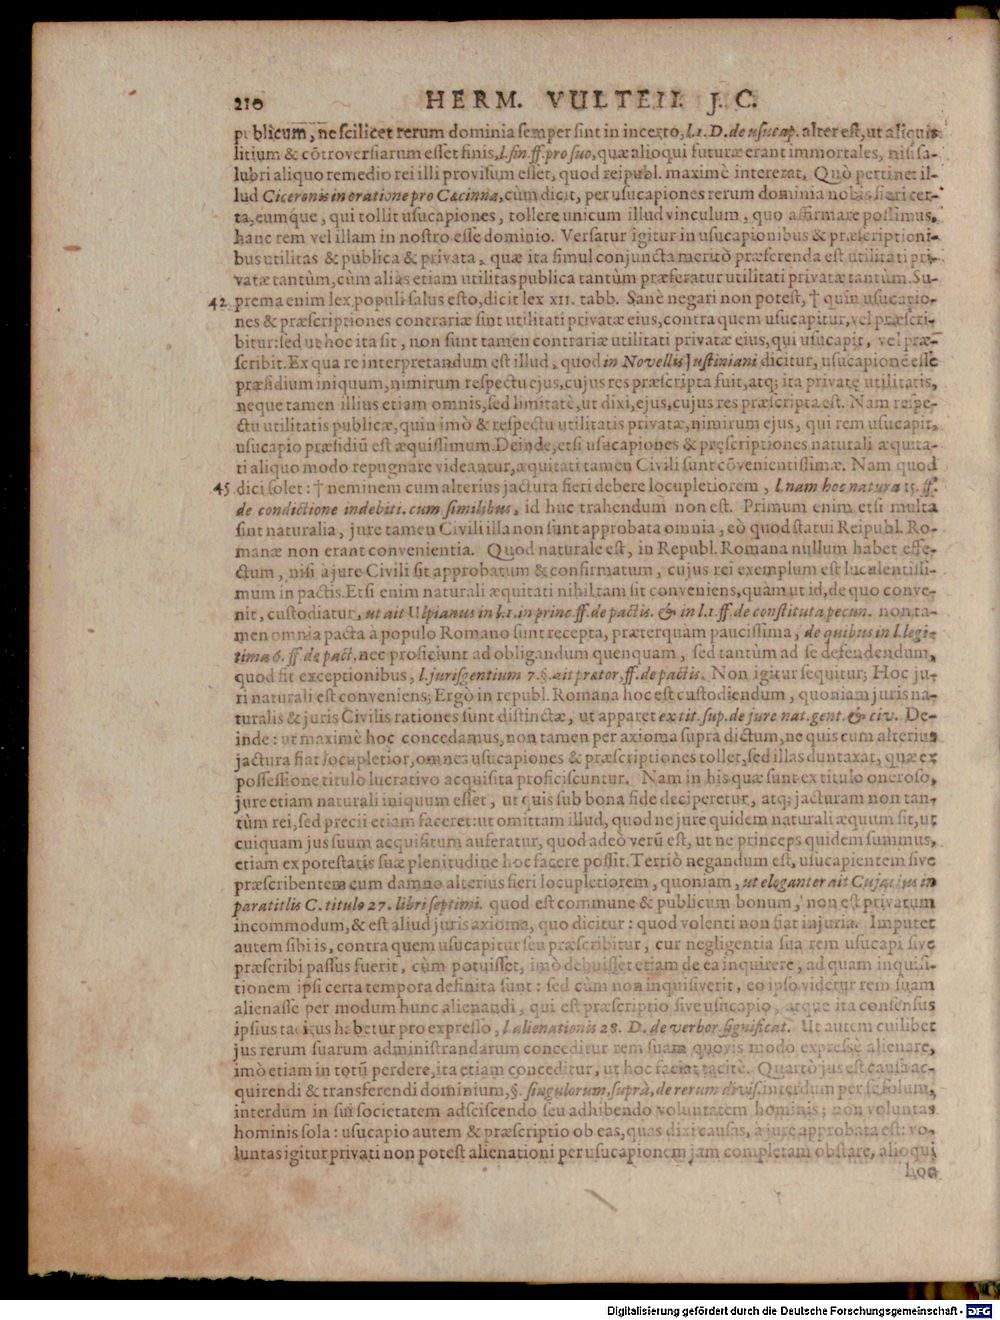 210 HERM. VULTEII. J. C.
publicum, ne scilicet rerum dominia semper sint in incerto, l.1. D. de usucap. alter est, ut aliquis
litium & cōtroversiarum esset finis, l. fin. ff. pro suo, quæ alioqui futuræ erant immortales, nisi sa-
lubri aliquo remedio rei illi provisum esset, quod reipubl. maximè intererat. Quò pertinet il-
lud Ciceronis in oratione pro Cæcinna, cùm dicit, per usucapiones rerum dominia nobis fieri cer-
ta, eumque, qui tollit usucapiones, tollere unicum illud vinculum, quo affirmare possimus,
hanc rem vel illam in nostro esse dominio. Versatur igitur in usucapionibus & præscriptioni-
bus utilitas & publica & privata, quæ ita simul conjuncta meritò præferenda est utilitati pri-
vatæ tantùm, cùm aliàs etiam utilitas publica tantùm præferatur utilitati privatæ tantùm. Su-
42. prema enim lex populi salus esto, dicit lex XII. tabb. Sanè negari non potest, † quin usucapio-
nes & præscriptiones contrariæ sint utilitati privatæ eius, contra quem usucapitur, vel præscri-
bitur: sed ut hoc ita sit, non sunt tamen contrariæ utilitati privatæ eius, qui usucapit, vel præ-
scribit. Ex qua re interpretandum est illud, quod in Novellis Justiniani dicitur, usucapionē esse
præsidium iniquum, nimirum respectu ejus, cujus res præscripta fuit, atq; ita privatę utilitatis,
neque tamen illius etiam omnis, sed limitatè, ut dixi, ejus, cujus res præscripta est. Nam respe-
ctu utilitatis publicæ, quin imò & respectu utilitatis privatæ, nimirum ejus, qui rem usucapit,
usucapio præsidiū est æquissimum. Deinde, etsi usucapiones & pręscriptiones naturali æquita-
ti aliquo modo repugnare videantur, æquitati tamen Civili sunt cōvenientissimæ. Nam quod
45 dici solet: † neminem cum alterius jactura fieri debere locupletiorem, l. nam hoc natura 15. ff.
de condictione indebiti. cum similibus, id huc trahendum non est. Primum enim etsi multa
sint naturalia, jure tamen Civili illa non sunt approbata omnia, eò quod statui Reipubl. Ro-
manæ non erant convenientia. Quod naturale est, in Republ. Romana nullum habet effe-
ctum, nisi à jure Civili sit approbatum & confirmatum, cujus rei exemplum est luculentissi-
mum in pactis. Etsi enim naturali æquitati nihil tam sit conveniens, quàm ut id, de quo conve-
nit, custodiatur, ut ait Ulpianus in l.1. in princ. ff. de pactis. & in l.1. ff. de constituta pecun. non ta-
men omnia pacta à populo Romano sunt recepta, præterquam paucissima, de quibus in l. legi-
tima 6. ff. de pact. nec proficiunt ad obligandum quenquam, sed tantùm ad se defendendum,
quod fit exceptionibus, l. jurisgentium 7. §. ait prætor, ff. de pactis. Non igitur sequitur; Hoc ju-
ri naturali est conveniens; Ergò in republ. Romana hoc est custodiendum, quoniam juris na-
turalis & juris Civilis rationes sunt distinctæ, ut apparet ex tit. sup. de jure nat. gent. & civ. De-
inde: ut maximè hoc concedamus, non tamen per axioma suprà dictum, ne quis cum alterius
jactura fiat locupletior, omnes usucapiones & præscriptiones tollet, sed illas duntaxat, quæ ex
possessione titulo lucrativo acquisita proficiscuntur. Nam in his quæ sunt ex titulo oneroso,
jure etiam naturali iniquum esset, ut quis sub bona fide deciperetur, atq; jacturam non tan-
tùm rei, sed precii etiam faceret: ut omittam illud, quod ne jure quidem naturali æquum sit, ut
cuiquam jus suum acquisitum auferatur, quod adeò verū est, ut ne princeps quidem summus,
etiam ex potestatis suæ plenitudine hoc facere possit. Tertiò negandum est, usucapientem sive
præscribentem cum damno alterius fieri locupletiorem, quoniam, ut eleganter ait Cujacius in
paratitlis C. titulo 27. libri septimi. quod est commune & publicum bonum, non est privatum
incommodum, & est aliud juris axioma, quo dicitur: quod volenti non fiat injuria. Imputet
autem sibi is, contra quem usucapitur seu præscribitur, cur negligentia sua rem usucapi sive
præscribi passus fuerit, cùm potuisset, imò debuisset etiam de ea inquirere, ad quam inquisi-
tionem ipsi certa tempora definita sunt: sed cùm non inquisiverit, eo ipso videtur rem suam
alienasse per modum hunc alienandi, qui est præscriptio sive usucapio, atque ita consensus
ipsius tacitus habetur pro expresso, l. alienationis 28. D. de verbor. significat. Ut autem cuilibet
jus rerum suarum administrandarum conceditur rem suam quovis modo expressè alienare,
imò etiam in totū perdere, ita etiam conceditur, ut hoc faciat tacitè. Quartò jus est causa ac-
quirendi & transferendi dominium, §. singulorum, suprà, de rerum divis. interdum per se solum,
interdum in sui societatem adsciscendo seu adhibendo voluntatem hominis; non voluntas
hominis sola: usucapio autem & præscriptio ob eas, quas dixi causas, à jure approbata est: vo-
luntas igitur privati non potest alienationi per usucapionem jam completam obstare, alioqui
hoc
Digitalisierung gefördert durch die Deutsche Forschungsgemeinschaft - DFG